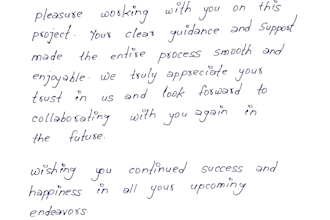 pleasure working with you on this
project. Your clear guidance and support
made the entire process smooth and
enjoyable. We truly appreciate your
trust in us and look forward to
collaborating with you again in
the future.
wishing you continued success and
happiness in all your upcoming
endeavors